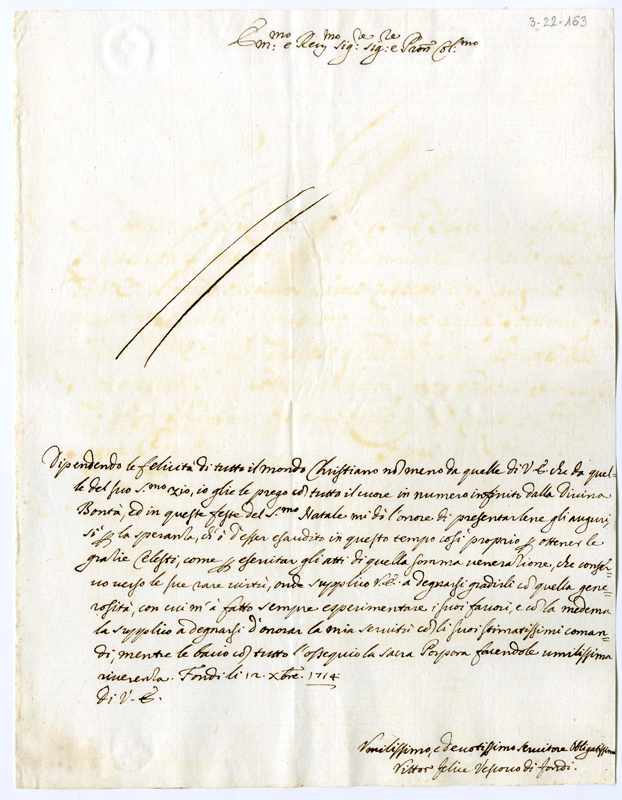 3-22-163
Em:mo e Rev:mo Sig:re Sig:re e Pron Col:mo
Dipendendo le felicità di tutto il mondo Christiano nō meno da quelle di V. E. che da quel=
le del suo S.mo Zio, io glie le prego cō tutto il cuore in numero infiniti dalla Divina
Bontà, ed in queste feste del S.mo Natale mi dò l'onore di presentarlene gli augurj,
sì p la speranza, ch'ò d'esser esaudito in questo tempo così proprio p ottener le
grazie Celesti, come p esercitar gli atti di quella somma venerazione, che conser=
vo verso le sue rare virtù, onde supplico V. E. a degnarsi gradirli cō quella gene=
rosità, con cui m'à fatto sempre esperimentare i suoi favori, e cō la medema
la supplico a degnarsi d'onorar la mia servitù cō li suoi stimatissimi coman=
di, mentre le bacio cō tutto l'ossequio la sacra Porpora facendole umilissima
riverenza. Fondi li 12. Xbre. 1714.
Di V. E.
Umilissimo, e devotissimo servitore obligatissimo
Vittor felice Vescovo di fondi.